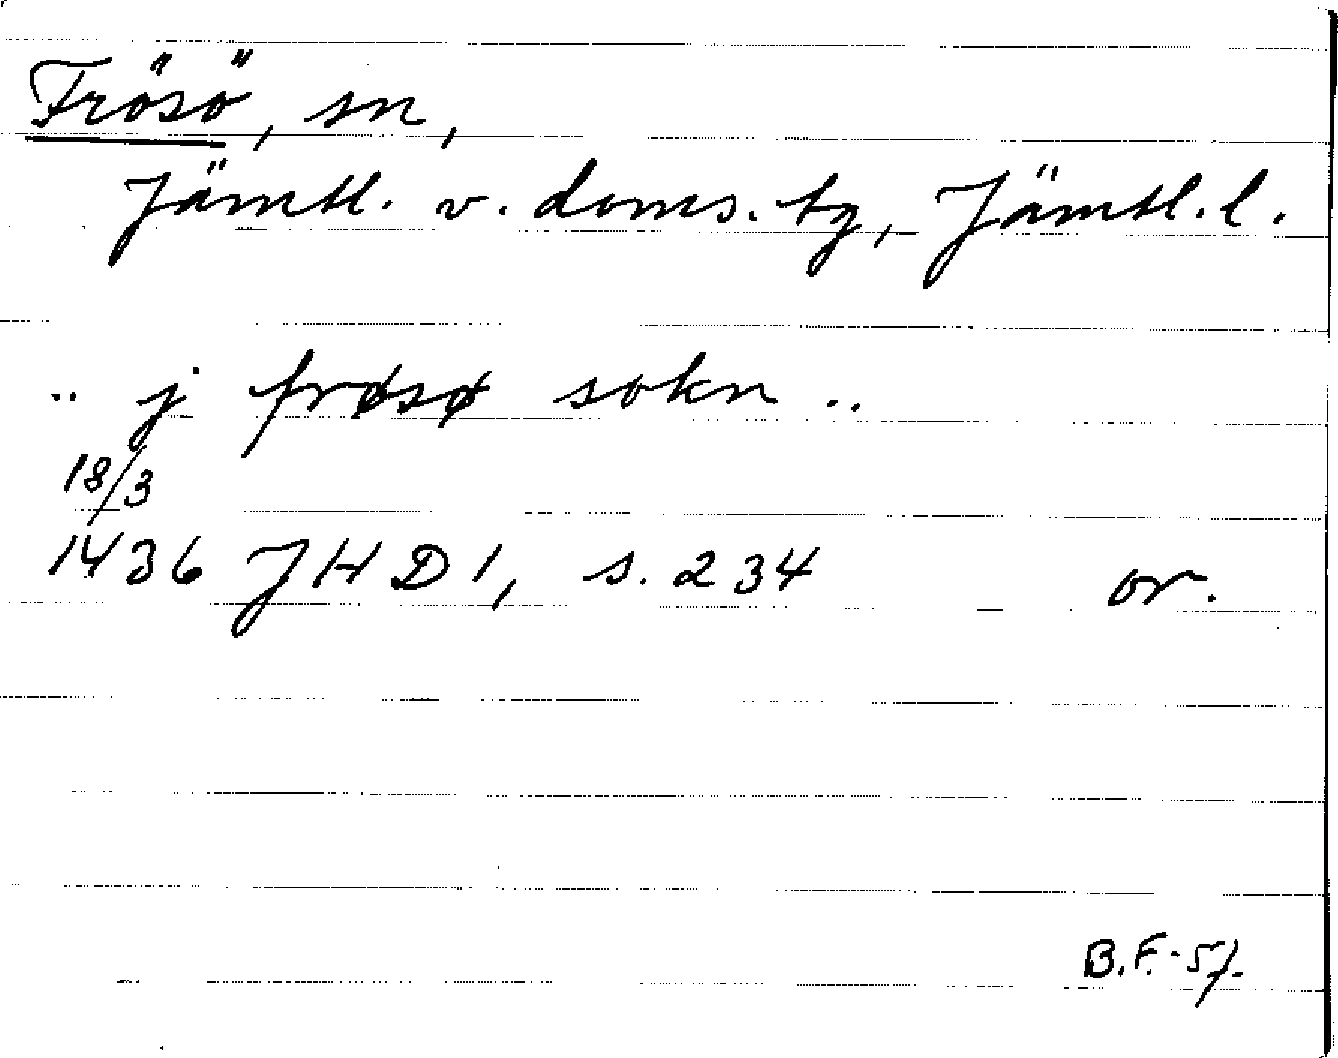 Frösö, sn,
Jämtl. v. doms. tg, Jämtl. l.
.. j frøsø sokn ..
18/3
1436 JHD 1, s. 234 or.
B.F.-57.